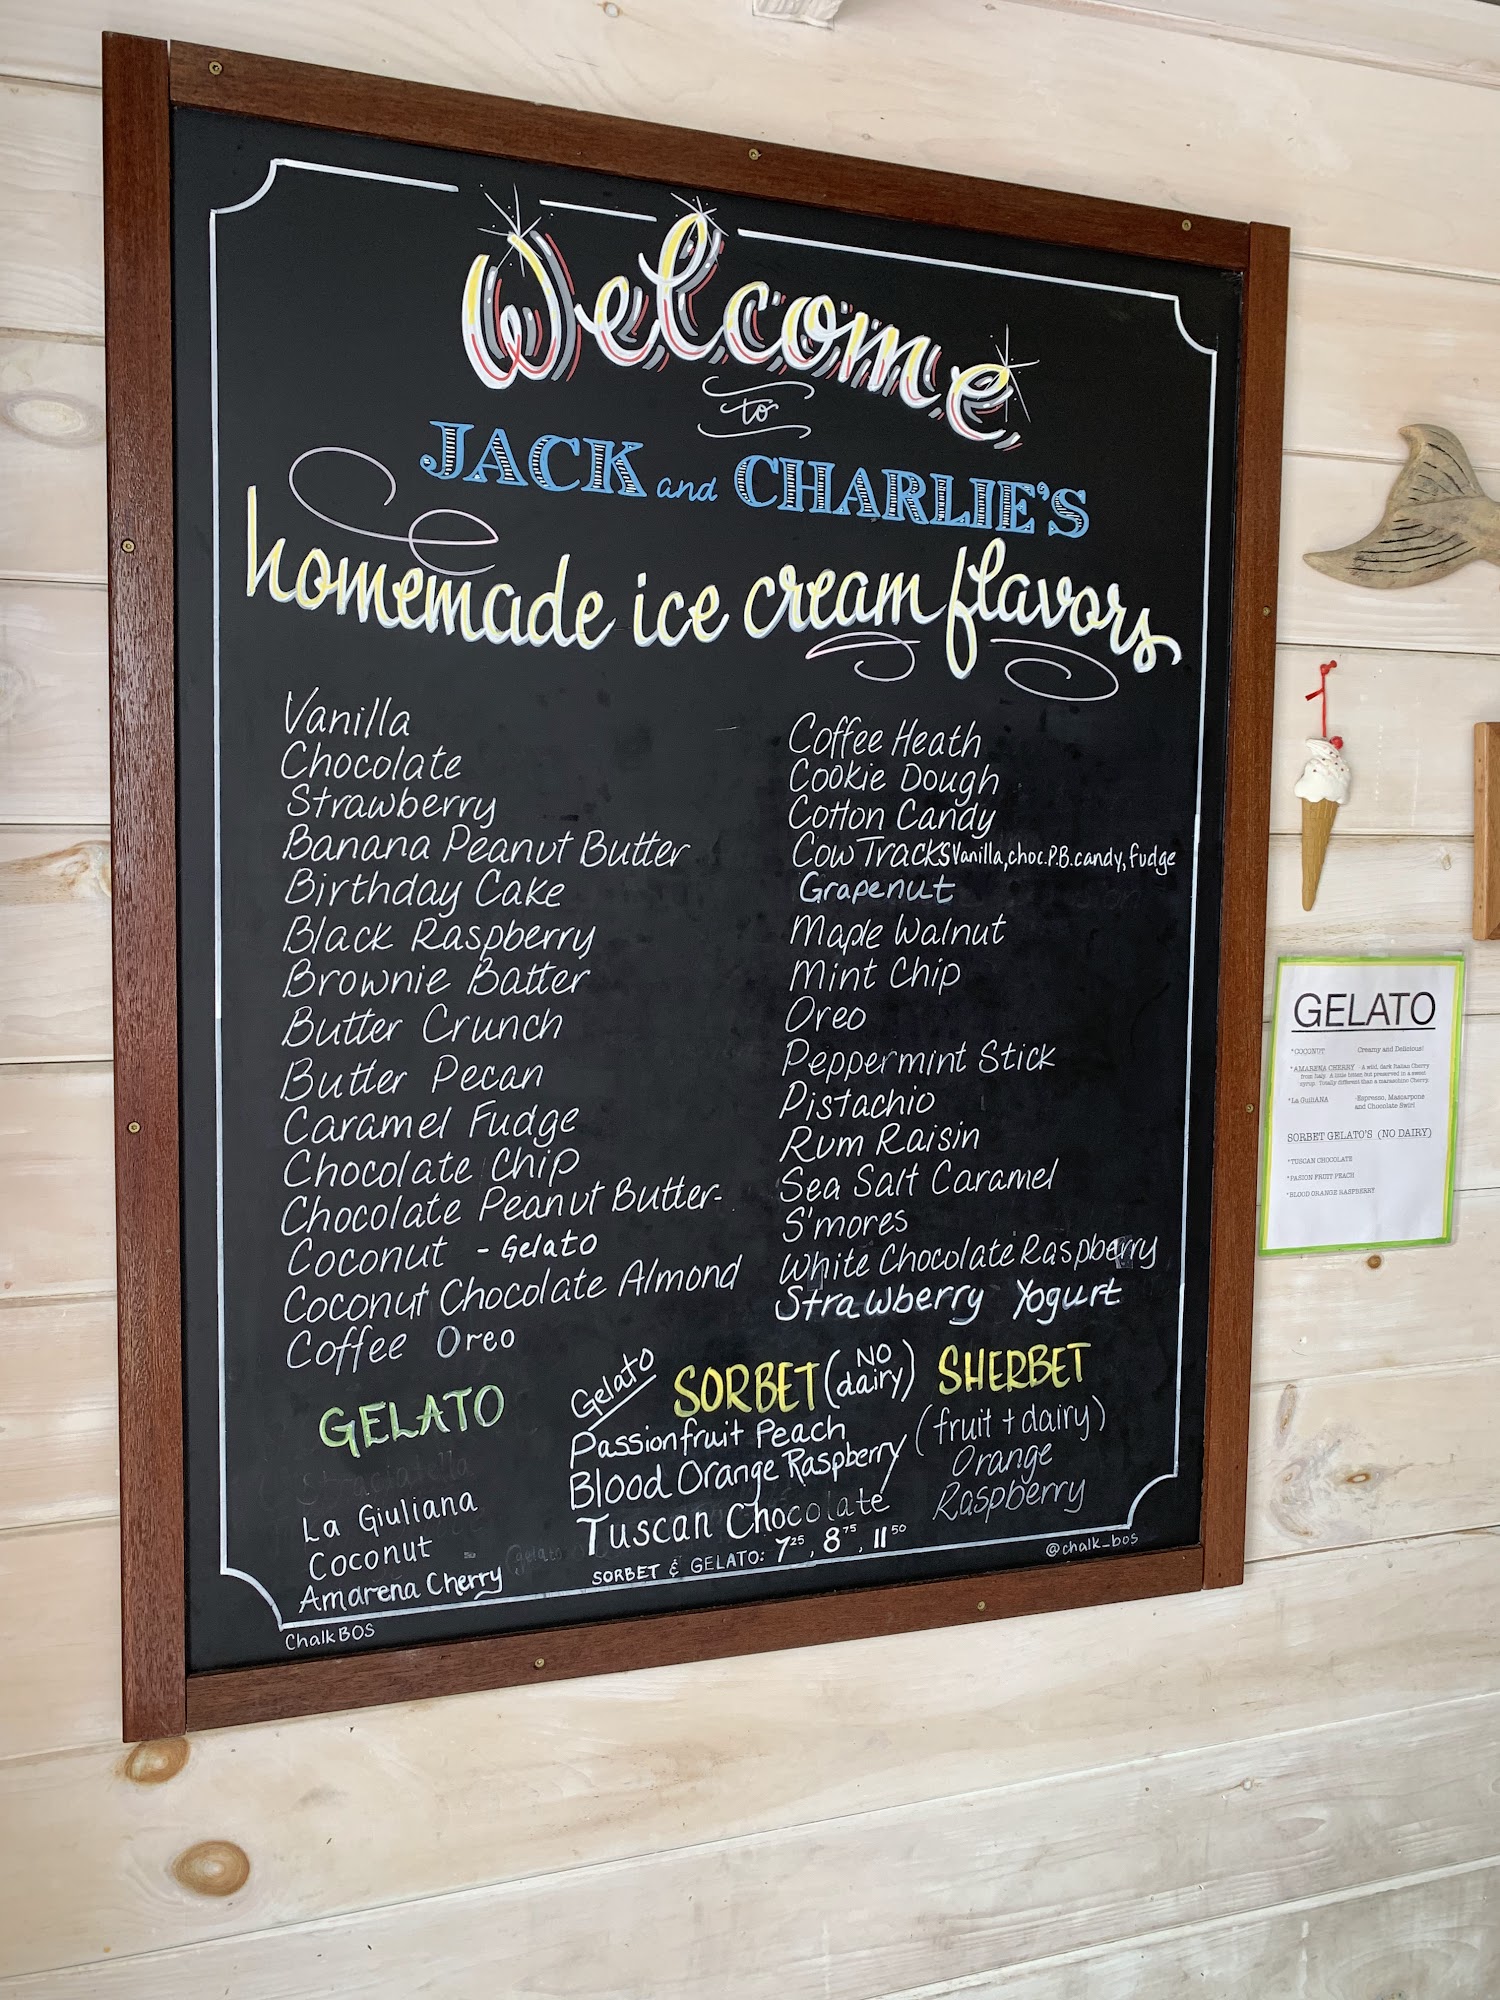 Welcome
to
JACK and CHARLIE'S
homemade ice cream flavors
Vanilla
Chocolate
Strawberry
Banana Peanut Butter
Birthday Cake
Black Raspberry
Brownie Batter
Butter Crunch
Butter Pecan
Caramel Fudge
Chocolate Chip
Chocolate Peanut Butter-
Coconut - Gelato
Coconut Chocolate Almond
Coffee Oreo
Coffee Heath
Cookie Dough
Cotton Candy
Cow Tracks Vanilla, choc. P.B. candy, fudge
Grapenut
Maple Walnut
Mint Chip
Oreo
Peppermint Stick
Pistachio
Rum Raisin
Sea Salt Caramel
S'mores
White Chocolate Raspberry
Strawberry Yogurt
GELATO
Straciatella
La Giuliana
Coconut
Amarena Cherry
Gelato
SORBET (NO dairy)
Passionfruit Peach
Blood Orange Raspberry
Tuscan Chocolate
SORBET & GELATO: 7 25, 8 75, 11 50
SHERBET
(fruit + dairy)
Orange
Raspberry
@chalk_bos
ChalkBOS
GELATO
*COCONUT Creamy and Delicious!
*AMARENA CHERRY - A wild, dark Italian Cherry
from Italy. A little bitter, but preserved in a sweet
syrup. Totally different than a maraschino Cherry.
*La GuiliANA -Espresso, Mascarpone
and Chocolate Swirl
SORBET GELATO'S (NO DAIRY)
*TUSCAN CHOCOLATE
*PASION FRUIT PEACH
*BLOOD ORANGE RASPBERRY